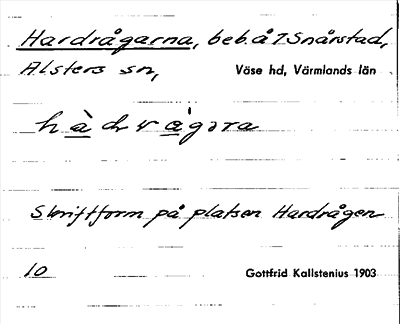 Hardrågarna, beb. å Snårstad,
Alsters sn, Väse hd, Värmlands län
hàdrågәra
Skriftform på platsen Hardrågen
10 Gottfrid Kallstenius 1903